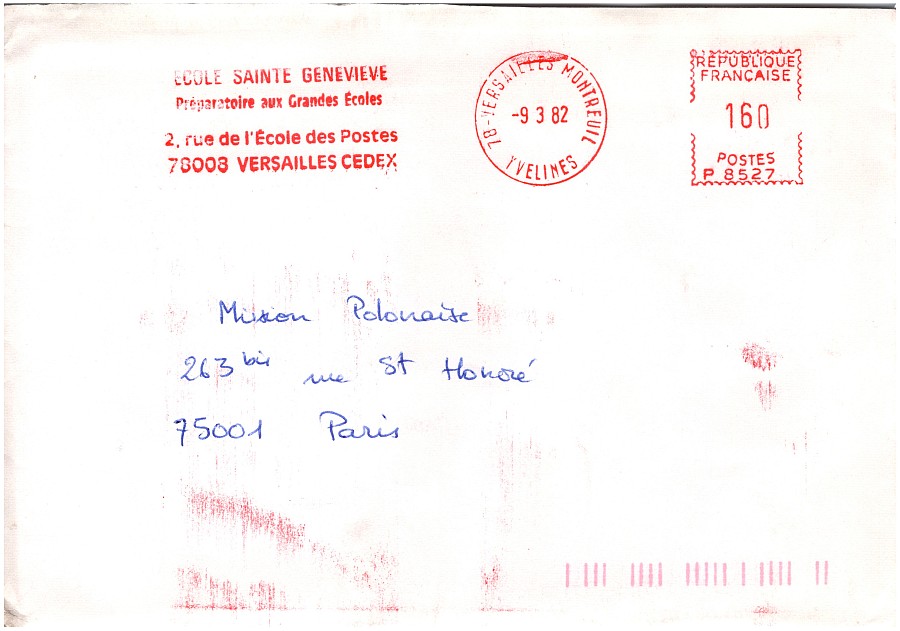 ÉCOLE SAINTE GENEVIEVE
Préparatoire aux Grandes Écoles
2, rue de l'École des Postes
78008 VERSAILLES CEDEX
78-VERSAILLES MONTREUIL
-9 3 82
YVELINES
RÉPUBLIQUE
FRANÇAISE
160
POSTES
P 8527
Mission Polonaise
263 bis rue St Honoré
75001 Paris